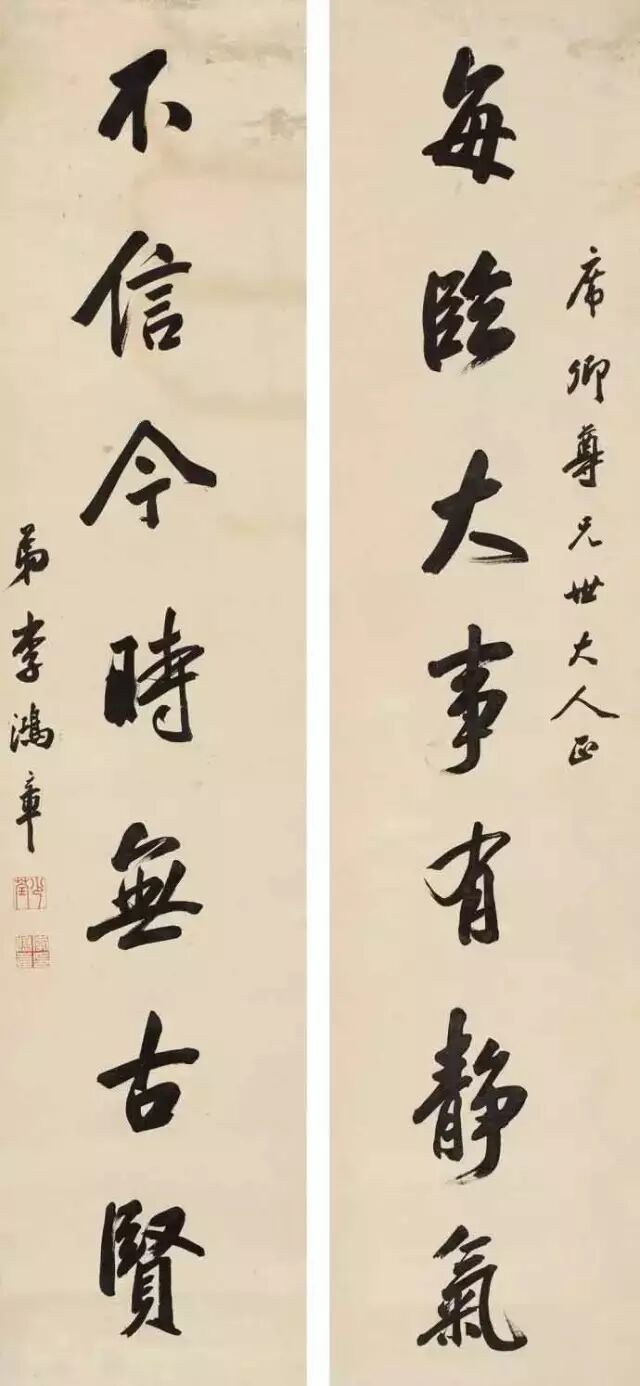 席卿尊兄世大人正
每臨大事有静氣
不信今時無古賢
弟李鴻章
少荃